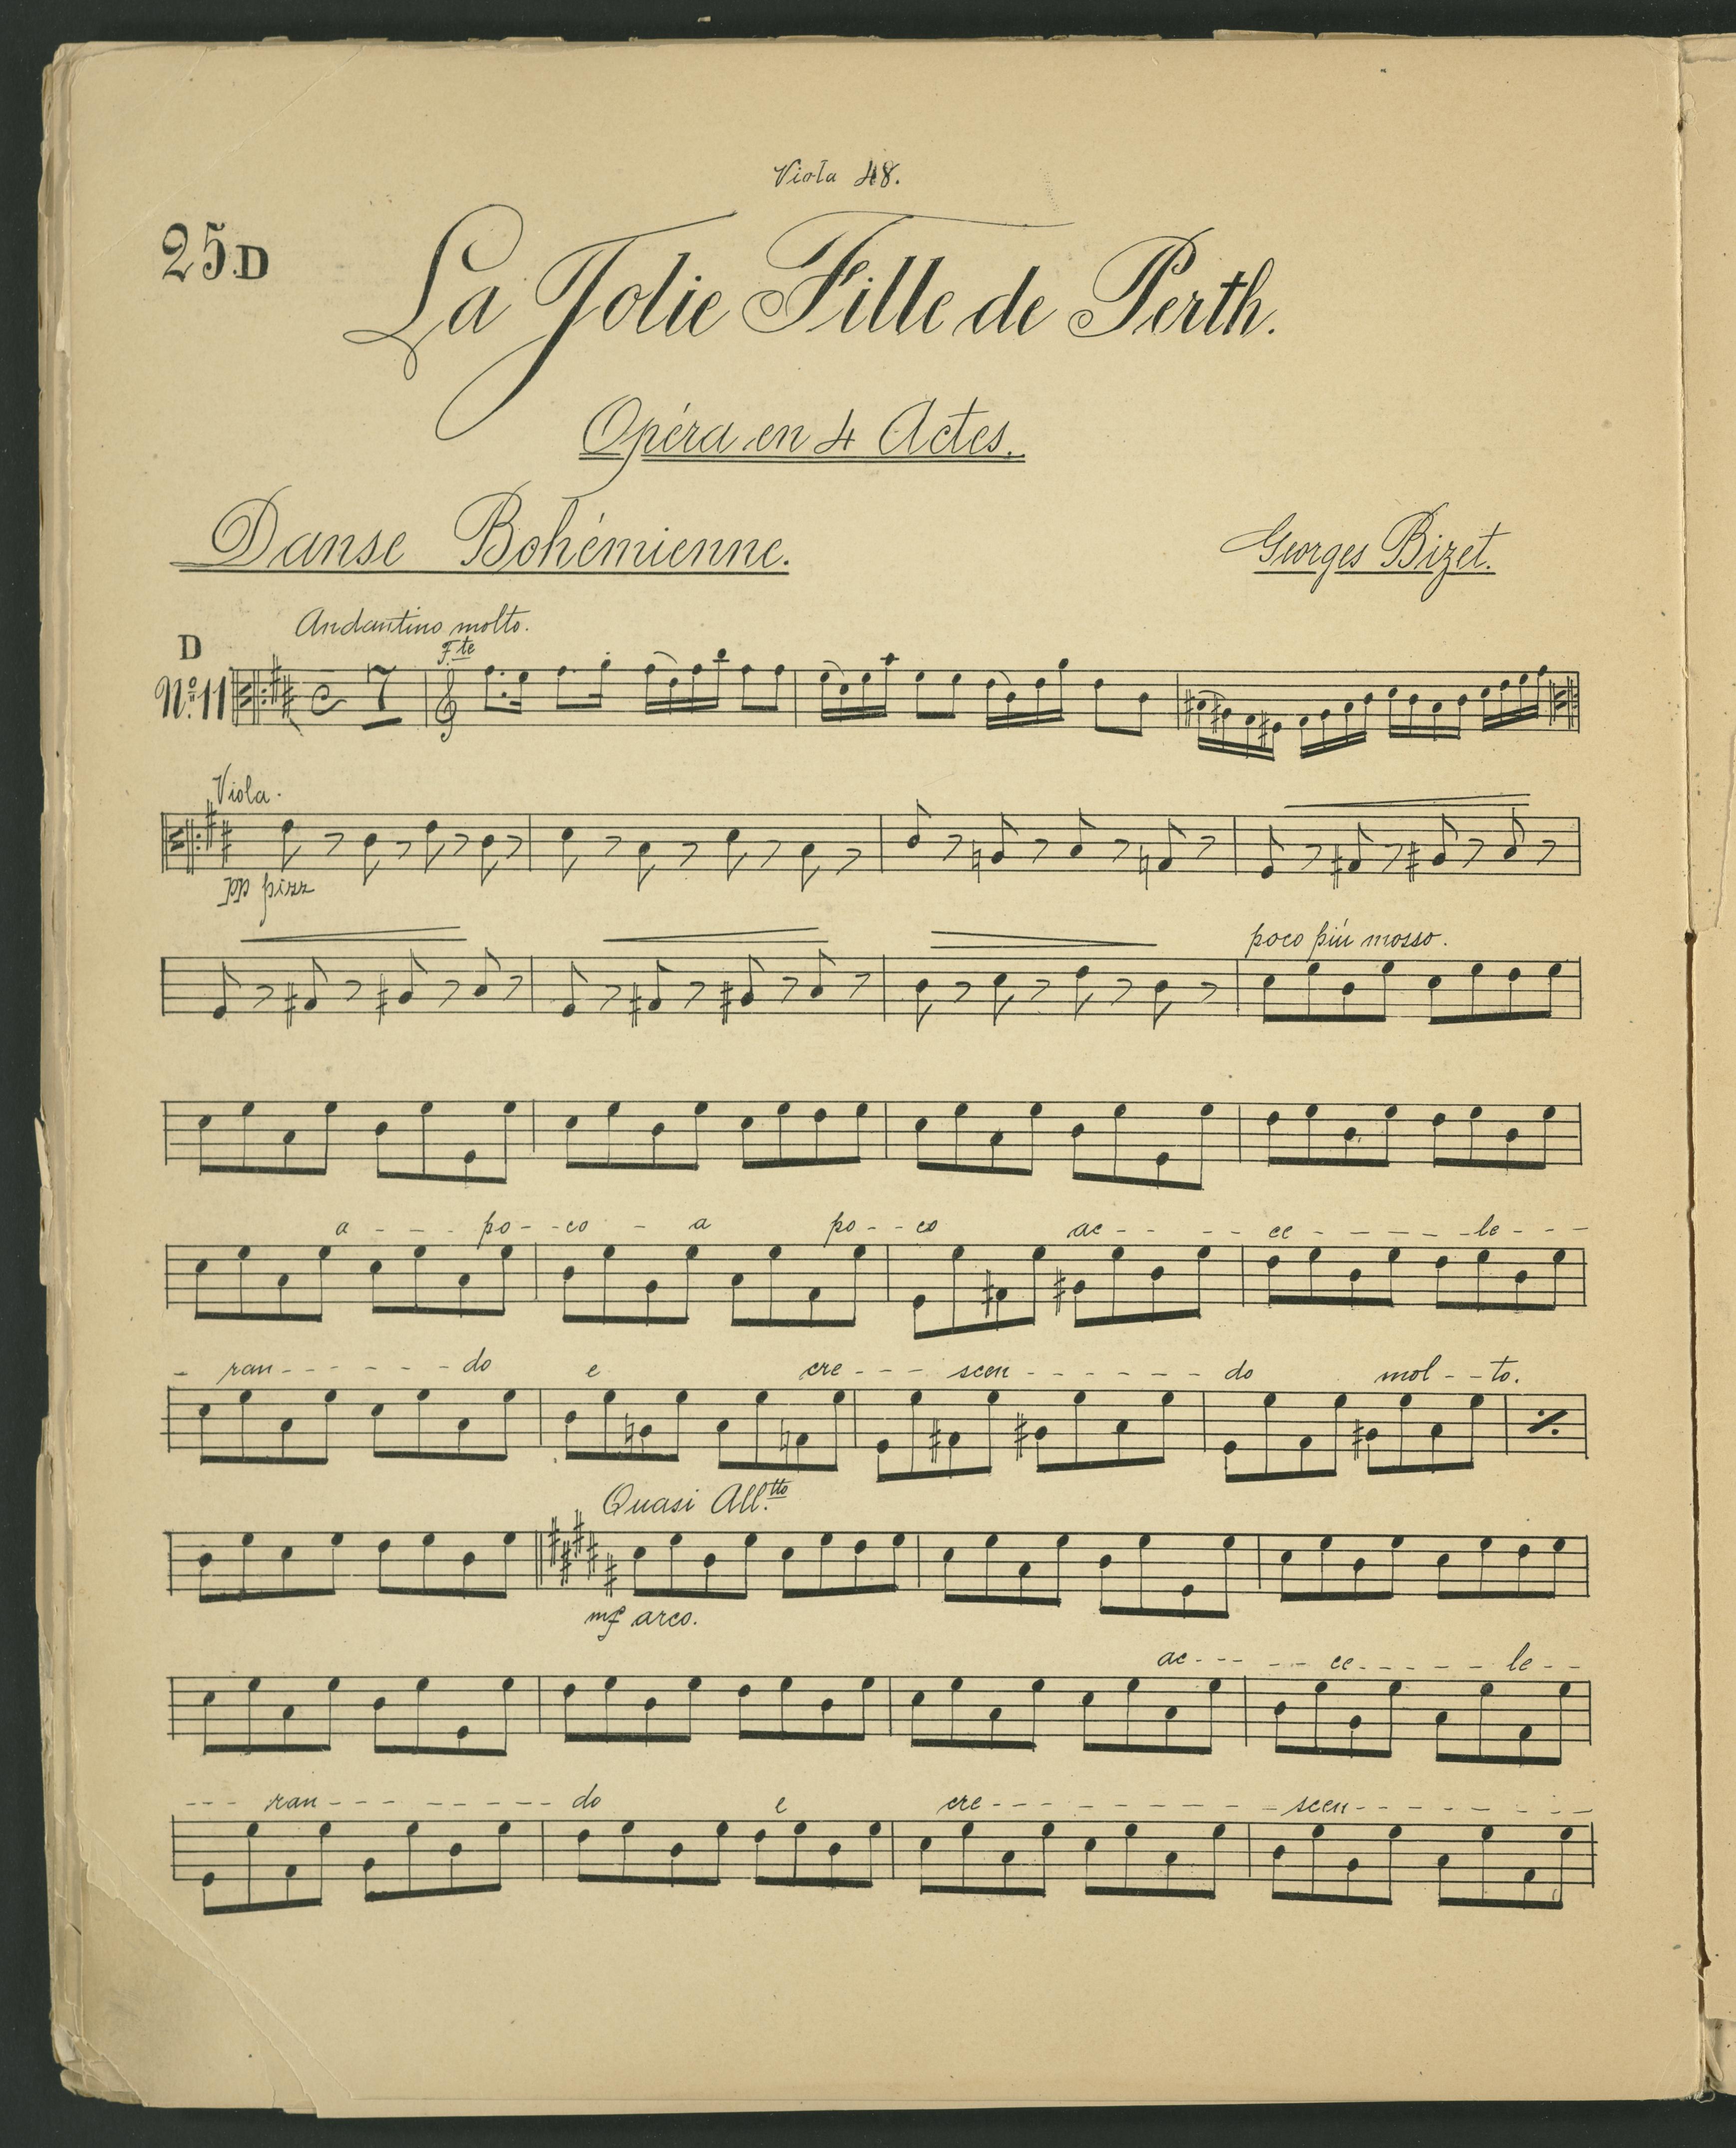 Viola 48.
25D
La Jolie Fille de Perth.
Opéra en 4 Actes.
Danse Bohémienne.
Georges Bizet.
Andantino molto.
D
Fte
No. 11
7
Viola.
pp pizz
poco più mosso.
a - - - po - - co - a po - - co ac - - - - ce - - - - - le - - -
- ran - - - - - - do e cre - - - scen - - - - - - do mol - - to.
Quasi All.tto
mf arco.
ac - - - - - ce - - - - - le - -
- - - ran - - - - - - - - do e cre - - - - - - - - - scen - - - - - - -